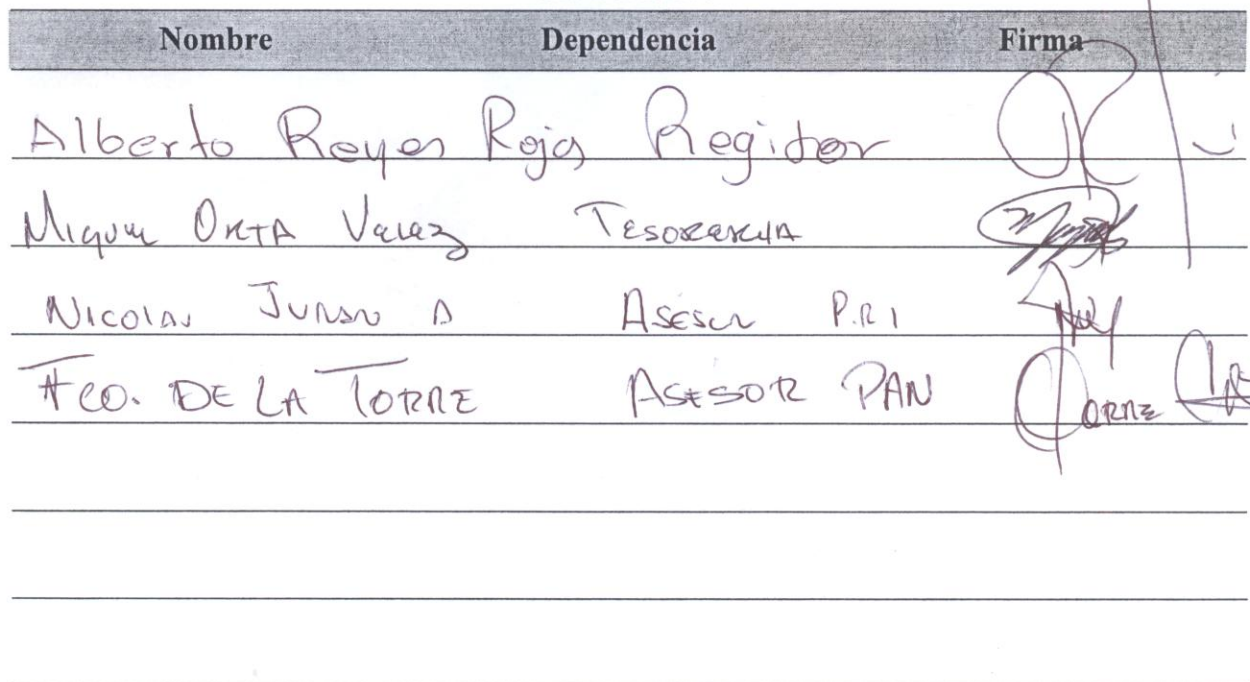 Nombre Dependencia Firma
Alberto Reyes Rojas Regidor
Miguel Orta Velez Tesoreria
Nicolas A Asesor P.R.I
Fco. DE LA TORRE ASESOR PAN TORRE